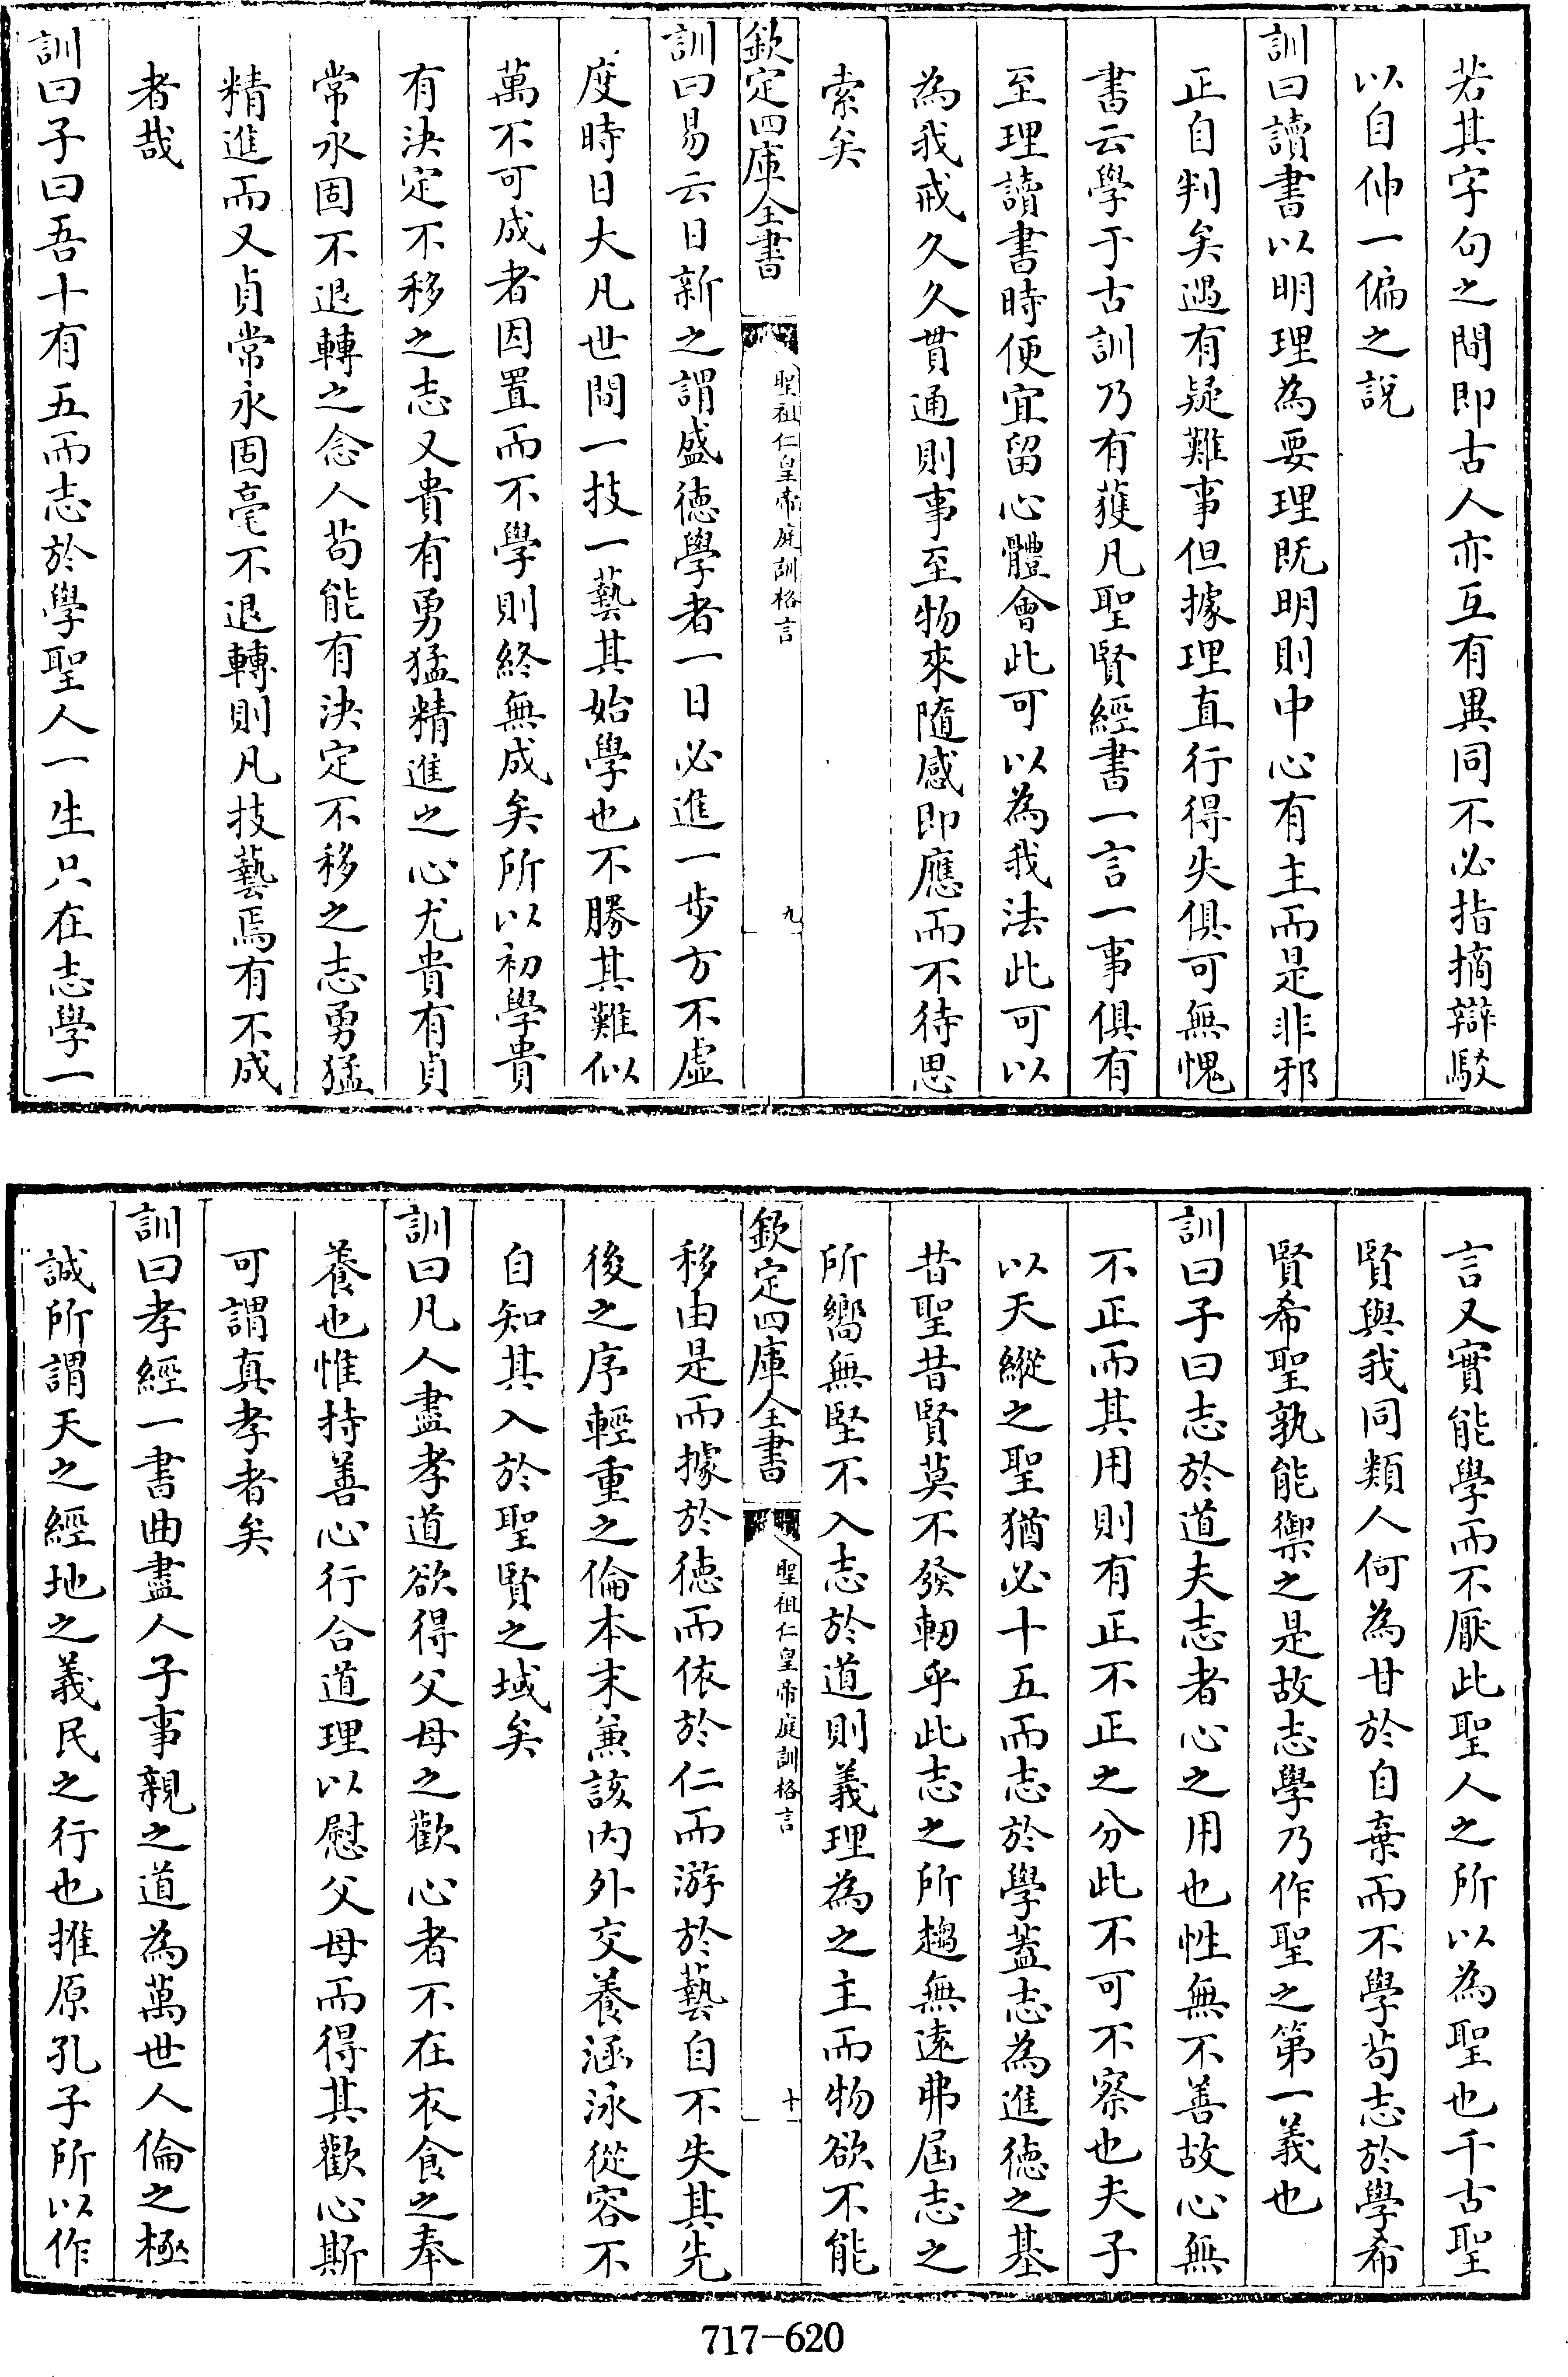 若其字句之間即古人亦互有異同不必指摘辯駁
以自伸一偏之說
訓曰讀書以明理為要理既明則中心有主而是非邪
正自判矣遇有疑難事但據理直行得失俱可無愧
書云學于古訓乃有獲凡聖賢經書一言一事俱有
至理讀書時便宜留心體會此可以為我法此可以
為我戒久久貫通則事至物來隨感即應而不待思
索矣
欽定四庫全書
聖祖仁皇帝庭訓格言
九
訓曰易云日新之謂盛德學者一日必進一步方不虛
度時日大凡世間一技一藝其始學也不勝其難似
萬不可成者因置而不學則終無成矣所以初學貴
有決定不移之志又貴有勇猛精進之心尤貴有貞
常永固不退轉之念人苟能有決定不移之志勇猛
精進而又貞常永固毫不退轉則凡技藝焉有不成
者哉
訓曰子曰吾十有五而志於學聖人一生只在志學一
言又實能學而不厭此聖人之所以為聖也千古聖
賢與我同類人何為甘於自棄而不學苟志於學希
賢希聖孰能禦之是故志學乃作聖之第一義也
訓曰子曰志於道夫志者心之用也性無不善故心無
不正而其用則有正不正之分此不可不察也夫子
以天縱之聖猶必十五而志於學蓋志為進德之基
昔聖昔賢莫不發軔乎此志之所趨無遠弗屆志之
所嚮無堅不入志於道則義理為之主而物欲不能
欽定四庫全書
聖祖仁皇帝庭訓格言
十
移由是而據於德而依於仁而游於藝自不失其先
後之序輕重之倫本末兼該内外交養涵泳從容不
自知其入於聖賢之域矣
訓曰凡人盡孝道欲得父母之歡心者不在衣食之奉
養也惟持善心行合道理以慰父母而得其歡心斯
可謂真孝者矣
訓曰孝經一書曲盡人子事親之道為萬世人倫之極
誠所謂天之經地之義民之行也推原孔子所以作
717-620